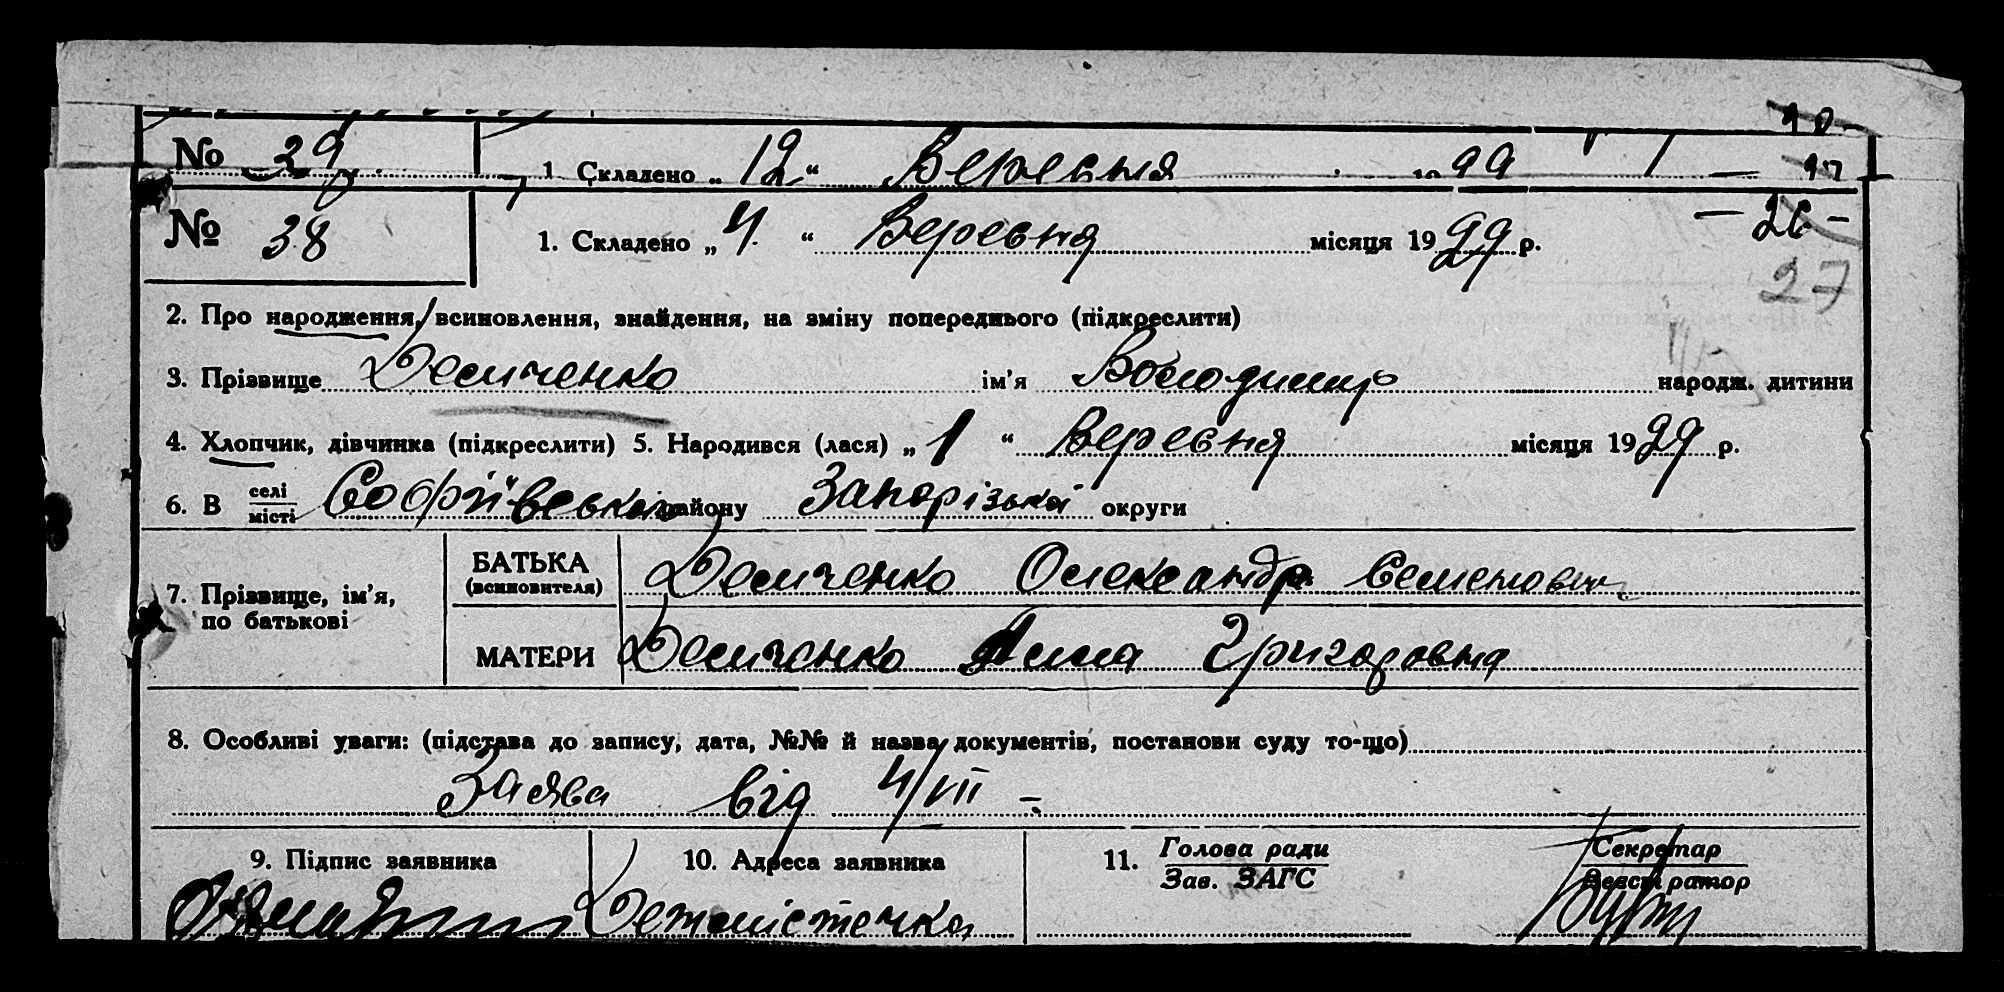 № 39 1 Складено „ 12 “ Вересня 1929
№ 38 1. Складено „ 4. “ Вересня місяця 1929 р.
— 26 —
27
2. Про народження, всиновлення, знайдення, на зміну попереднього (підкреслити)
3. Прізвище Демченко ім’я Володимир народж. дитини
4. Хлопчик, дівчинка (підкреслити) 5. Народився (лася) „ 1 “ Вересня місяця 1929 р.
6. В селі/місті Софіївського району Запорізької округи
7. Прізвище, ім’я, по батькові
БАТЬКА (всиновителя) Демченко Олександр Семенович
МАТЕРИ Демченко Анна Григоровна
8. Особливі уваги: (підстава до запису, дата, №№ й назва документів, постанови суду то-що)
Заява від 4/VII –
9. Підпис заявника 10. Адреса заявника 11. Голова ради Секретар
Зав. ЗАГС Реєстратор